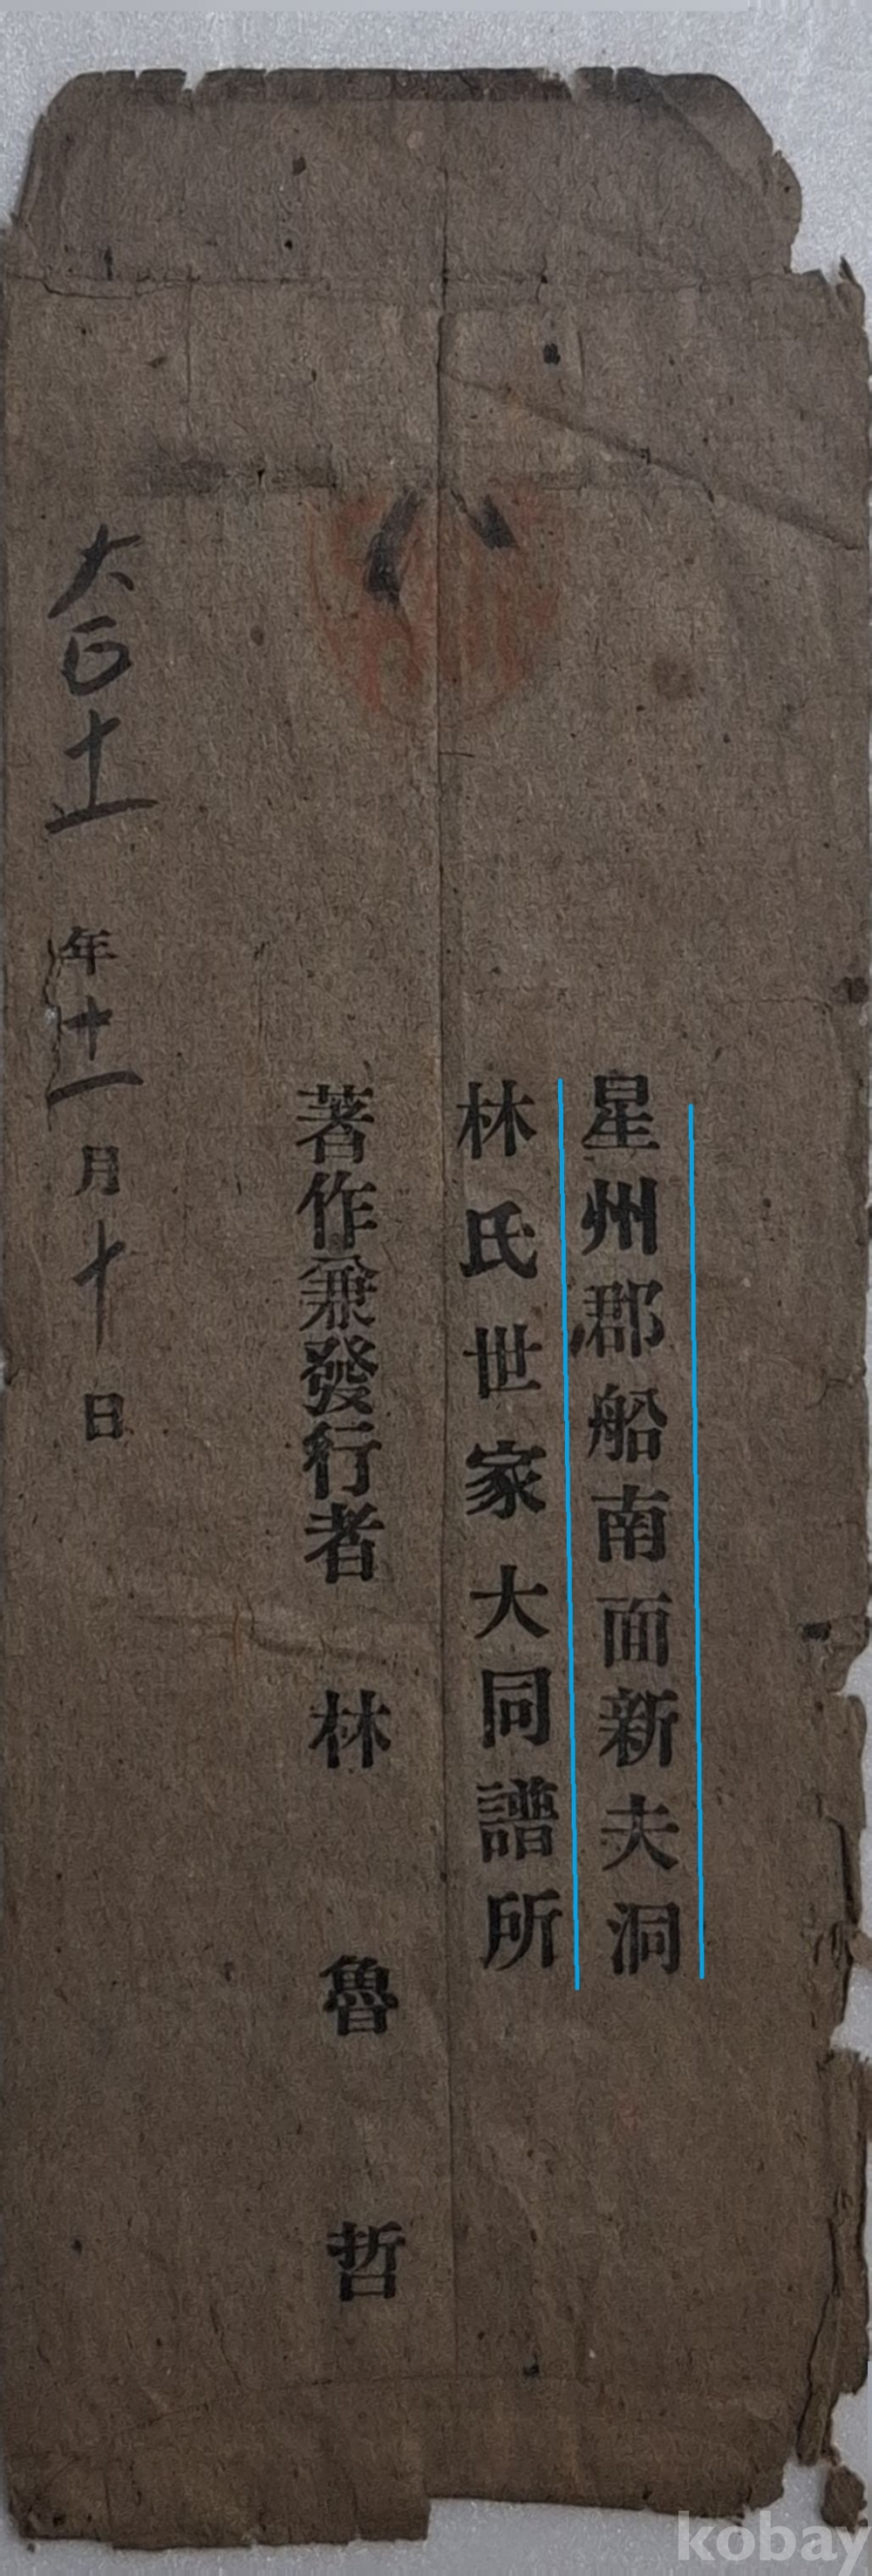 星州郡船南面新夫洞
林氏世家大同譜所
著作兼發行者 林魯哲
大正十一年十一月十日
kobay